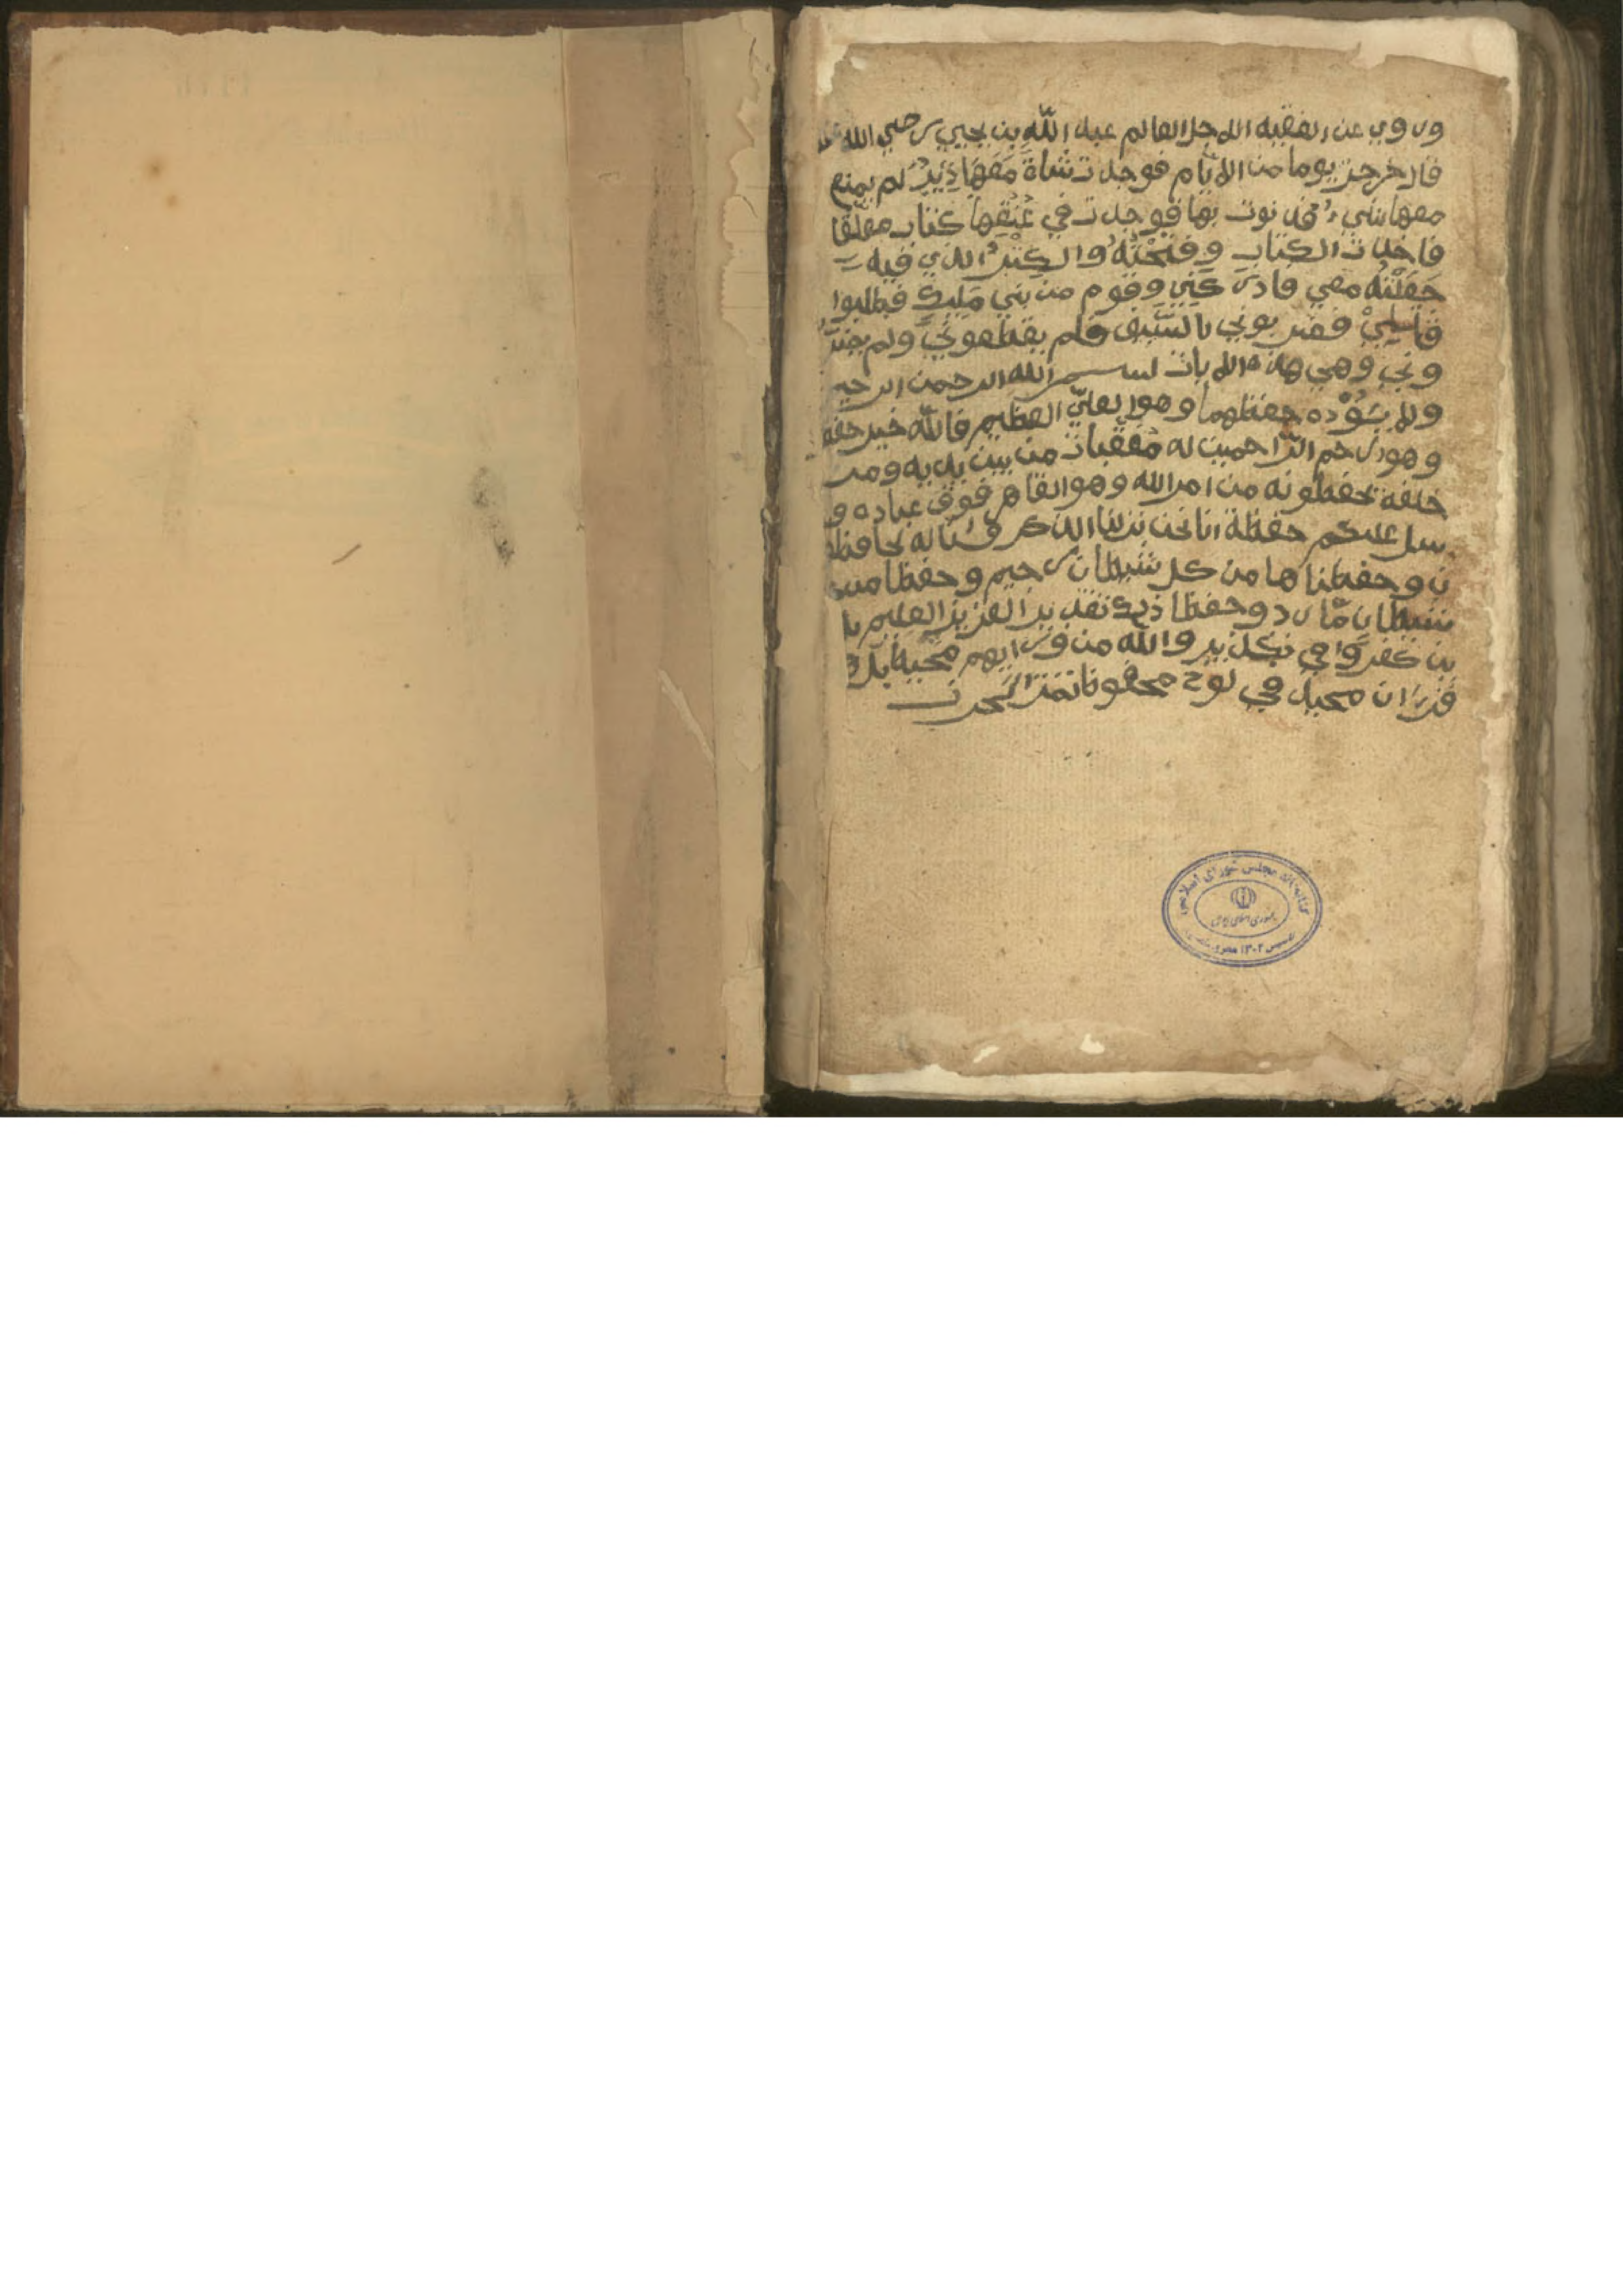 وروي عن الفقيه الاجل العالم عبد اللّه بن يحيي رضي الله
قال خرجت يوما من الايّام فوجدت شاة مَعَهَا ذِئبٌ لم يمنع
معها شيءٌ فدنوت بها فوجدت في عُنُقِهَا كتاب معلّقا
فاخذت الكتاب وفتحْتُهُ والكتبُ الذي فيه
جَعَلْتُهُ معي فادركني وقوم من بني مَلِيكٍ فطلبوا
فضربوني بالسَّيف فلم يقطعونيَ ولم يضرّ
وني وهي هذه الايات بسم الله الرحمن الرحيم
ولا يَئُوْده حفظهما وهو العليّ العظيم فاللّه خير حفظ
وهو ارحم الرّاحمين له مُعَقّبات من بين يديه ومن
خلفه يحفظونه من امر الله وهو القاهر فوق عباده و
يرسل عليكم حفظة انا نحن نزلنا الذكر وانّا له لحافظو
ن وحفظناها من كل شيطان رجيم وحفظا من
شيطان مّارد وحفظا ذلك تقدير العزيز العليم
ين كفروا في تكذيب واللّه من ورايهم محيط بل هو
قرءان مجيد في لوح محفوظ
كتابخانه مجلس شورای اسلامی
جمهوری اسلامی ایران
تاسیس ۱۳۰۲